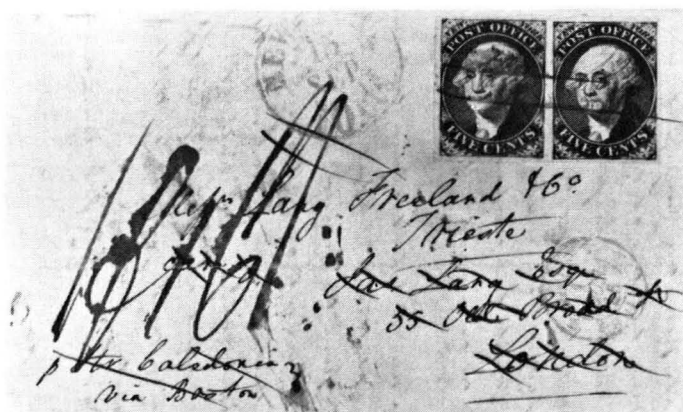 POST OFFICE
FIVE CENTS
POST OFFICE
FIVE CENTS
NEW
15
Messrs Lang Freeland & Co
Trieste
care of
Jas Lang Esqr
55 Old Broad St
London
p Str Caledonia
via Boston